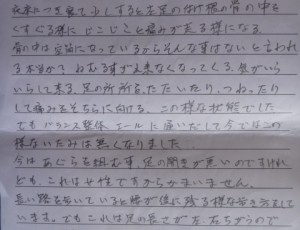 夜床につき寝て少しすると左足のつけ根の骨の中を
くすぐる様にじこじこと痛みが走る様になる。
骨の中は空洞になっているからそんな事はないと言われ
る本当か？ねむる事が出来なくなってくる。気がいら
いらして来る。足の所所をたたいたり、つねったり
して痛みをそちらに向ける。この様な状態でした
でもバランス整体エールに通いだして今ではこの
様ないたみは無くなりました
今はあぐらを組む事、足の開きが悪いのですけれ
ども、これは女性ですからかまいません。
長い路を歩いていると腰が後に残る様な歩き方をして
います。でもこれは足の長さが左、右ちがうので